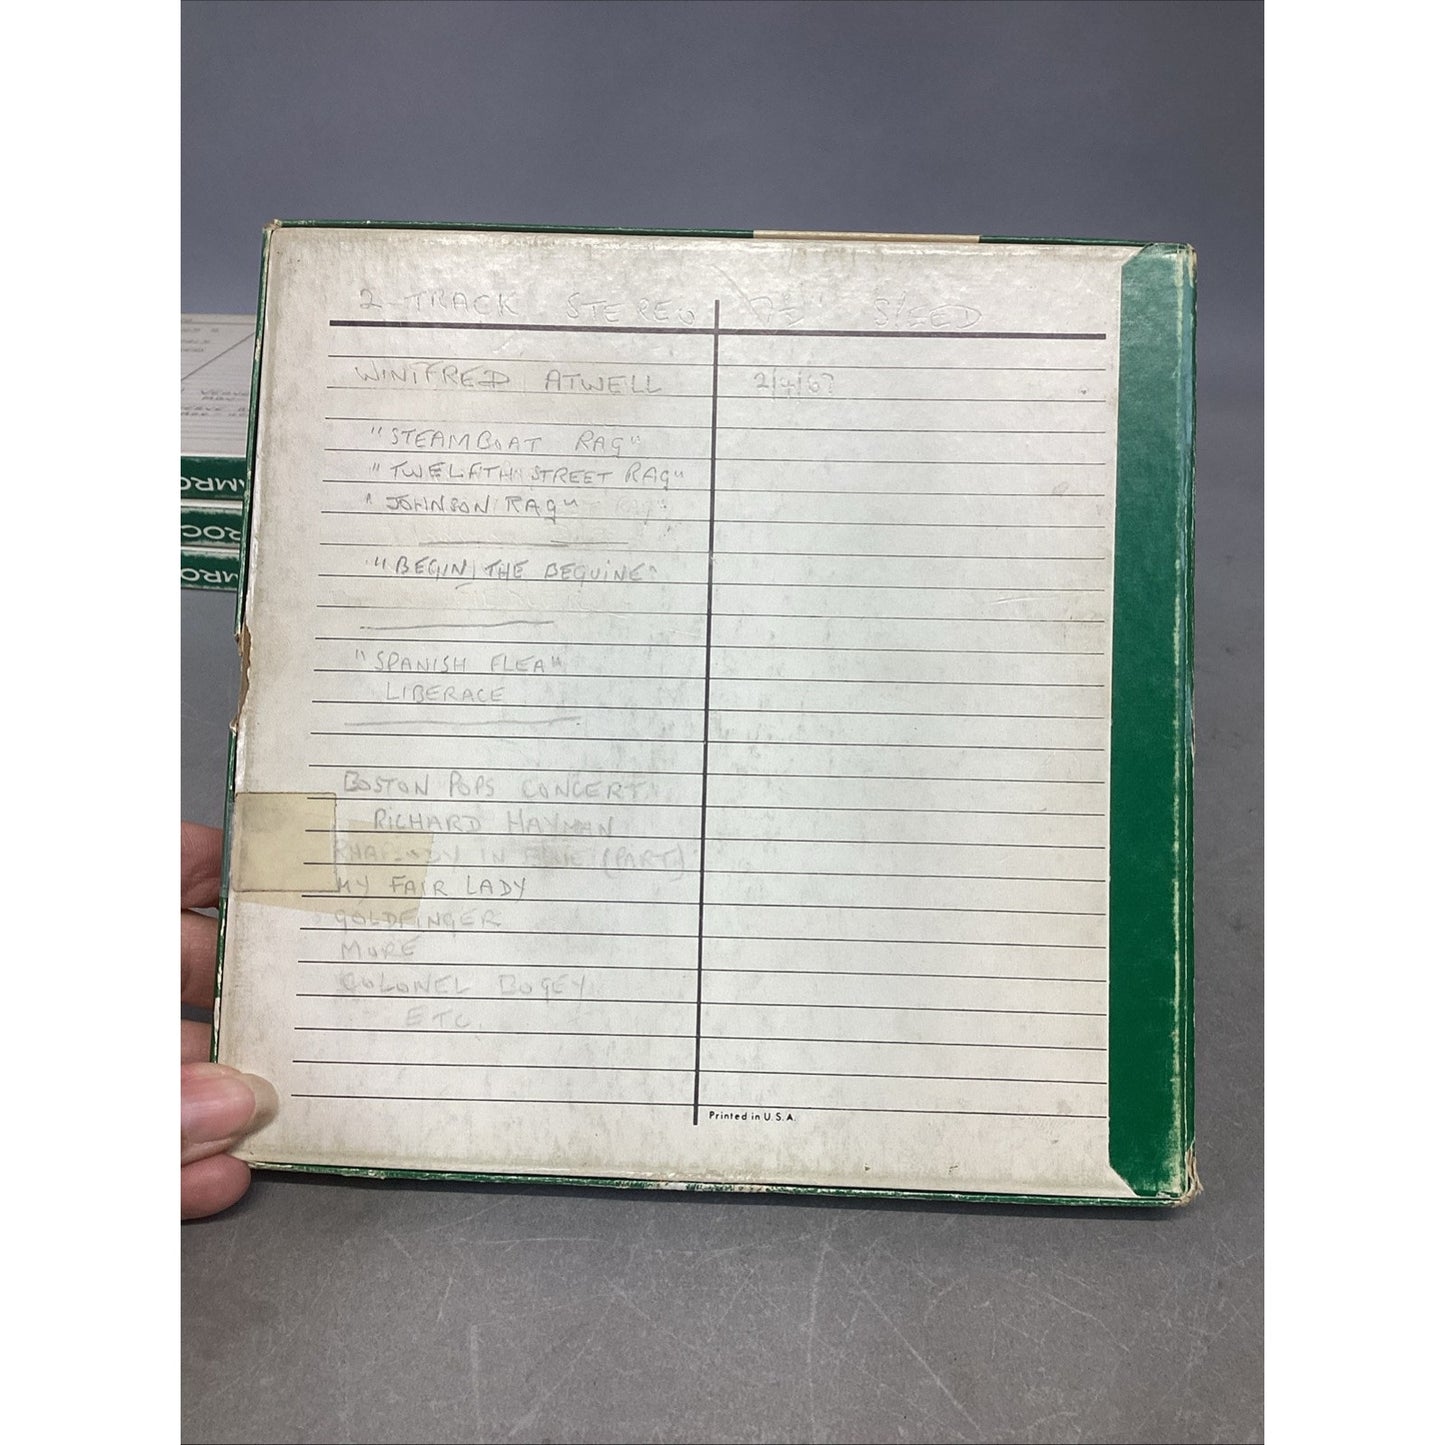 2-TRACK STEREO 7½" SPEED
WINIFRED ATWELL 2/4/67
"STEAMBOAT RAG"
"TWELFTH STREET RAG"
"JOHNSON RAG"
"BEGIN THE BEGUINE"
"SPANISH FLEA"
LIBERACE
BOSTON POPS CONCERT
RICHARD HAYMAN
RHAPSODY IN BLUE (PART)
MY FAIR LADY
GOLDFINGER
MORE
COLONEL BOGEY
ETC
Printed in U.S.A.